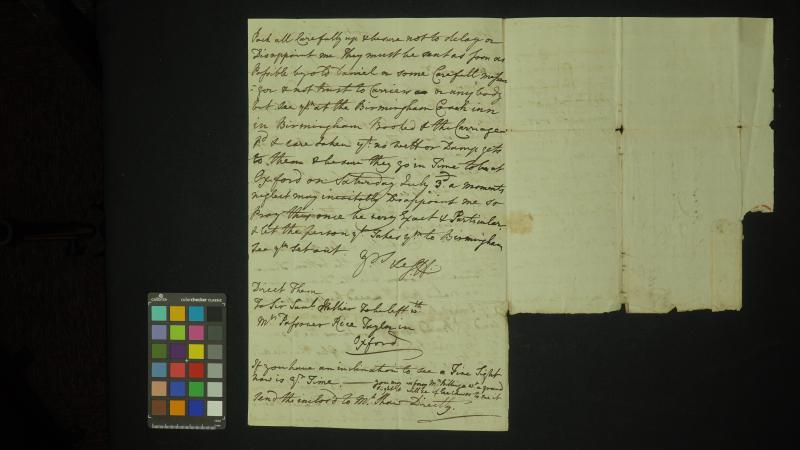 Pack all Carefully up & be sure not to delay or
Disappoint me. they must be sent as soon as
Possible by old Daniel or some Carefull messen
-ger & not trust to Carriers or any body
but see ym at the Birmingham Coach inn
in Birmingham Booked & the Carriage
Pd & care taken yt no wett or Damp gets
to them & be sure they go in Time to be at
Oxford on Saturday July 3d a moments
neglect may inevitably Disappoint me so
Pray this once be very Exact & Particular
& let the person yt Takes ym to Birmingham
see ym set out
Direct Them
To Sir Saml Hellier To be left at
Mr Rice Taylor in
Oxford
If you have an inclination to see a Fine Sight
now is yr Time. — you may
Send the inclosd to Mr Shaw Directly.